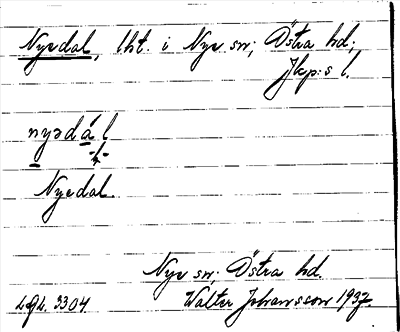 Nyedal, lht. i Nye sn; Östra hd;
Jkp:s l.
nyədál
Nyedal.
Nye sn; Östra hd.
Walter Johansson 1937.